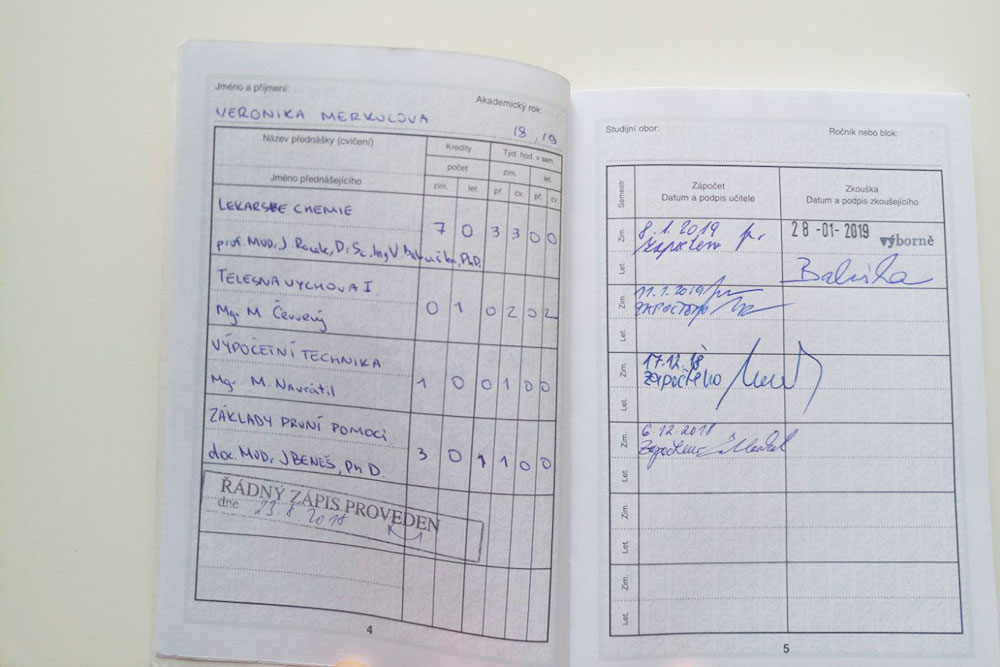 Jméno a příjmení:
Akademický rok:
VERONIKA MERKULOVA
18 , 19
Název přednášky (cvičení)
Kredity
Týd. hod. v sem.
počet
zim.
let.
Jméno přednášejícího
zim.
let.
př.
cv.
př.
cv.
LEKARSKE CHEMIE
7 0 3 3 0 0
prof. MUDr. J. DrSc., Ing. V. PhD.
TELESNA VYCHOVA I.
0 1 0 2 0 2
Mgr M. Červený
VÝPOČETNÍ TECHNIKA
1 0 0 1 0 0
Mgr. M. Navrátil
ZÁKLADY PRVNÍ POMOCI
3 0 1 1 0 0
doc. MUDr. J BENEŠ, Ph D.
ŘÁDNÝ ZÁPIS PROVEDEN
dne 23.8.2018
4
Studijní obor:
Ročník nebo blok:
Semestr
Zápočet
Datum a podpis učitele
Zkouška
Datum a podpis zkoušejícího
Zim.
8.1.2019
Započteno
28 -01- 2019
výborně
Let.
Zim.
11.1.2019
ZAPOČTENO
Let.
Zim.
17.12.18
Započteno
Let.
Zim.
6.12.2018
Započteno
Let.
Zim.
Let.
Zim.
Let.
5